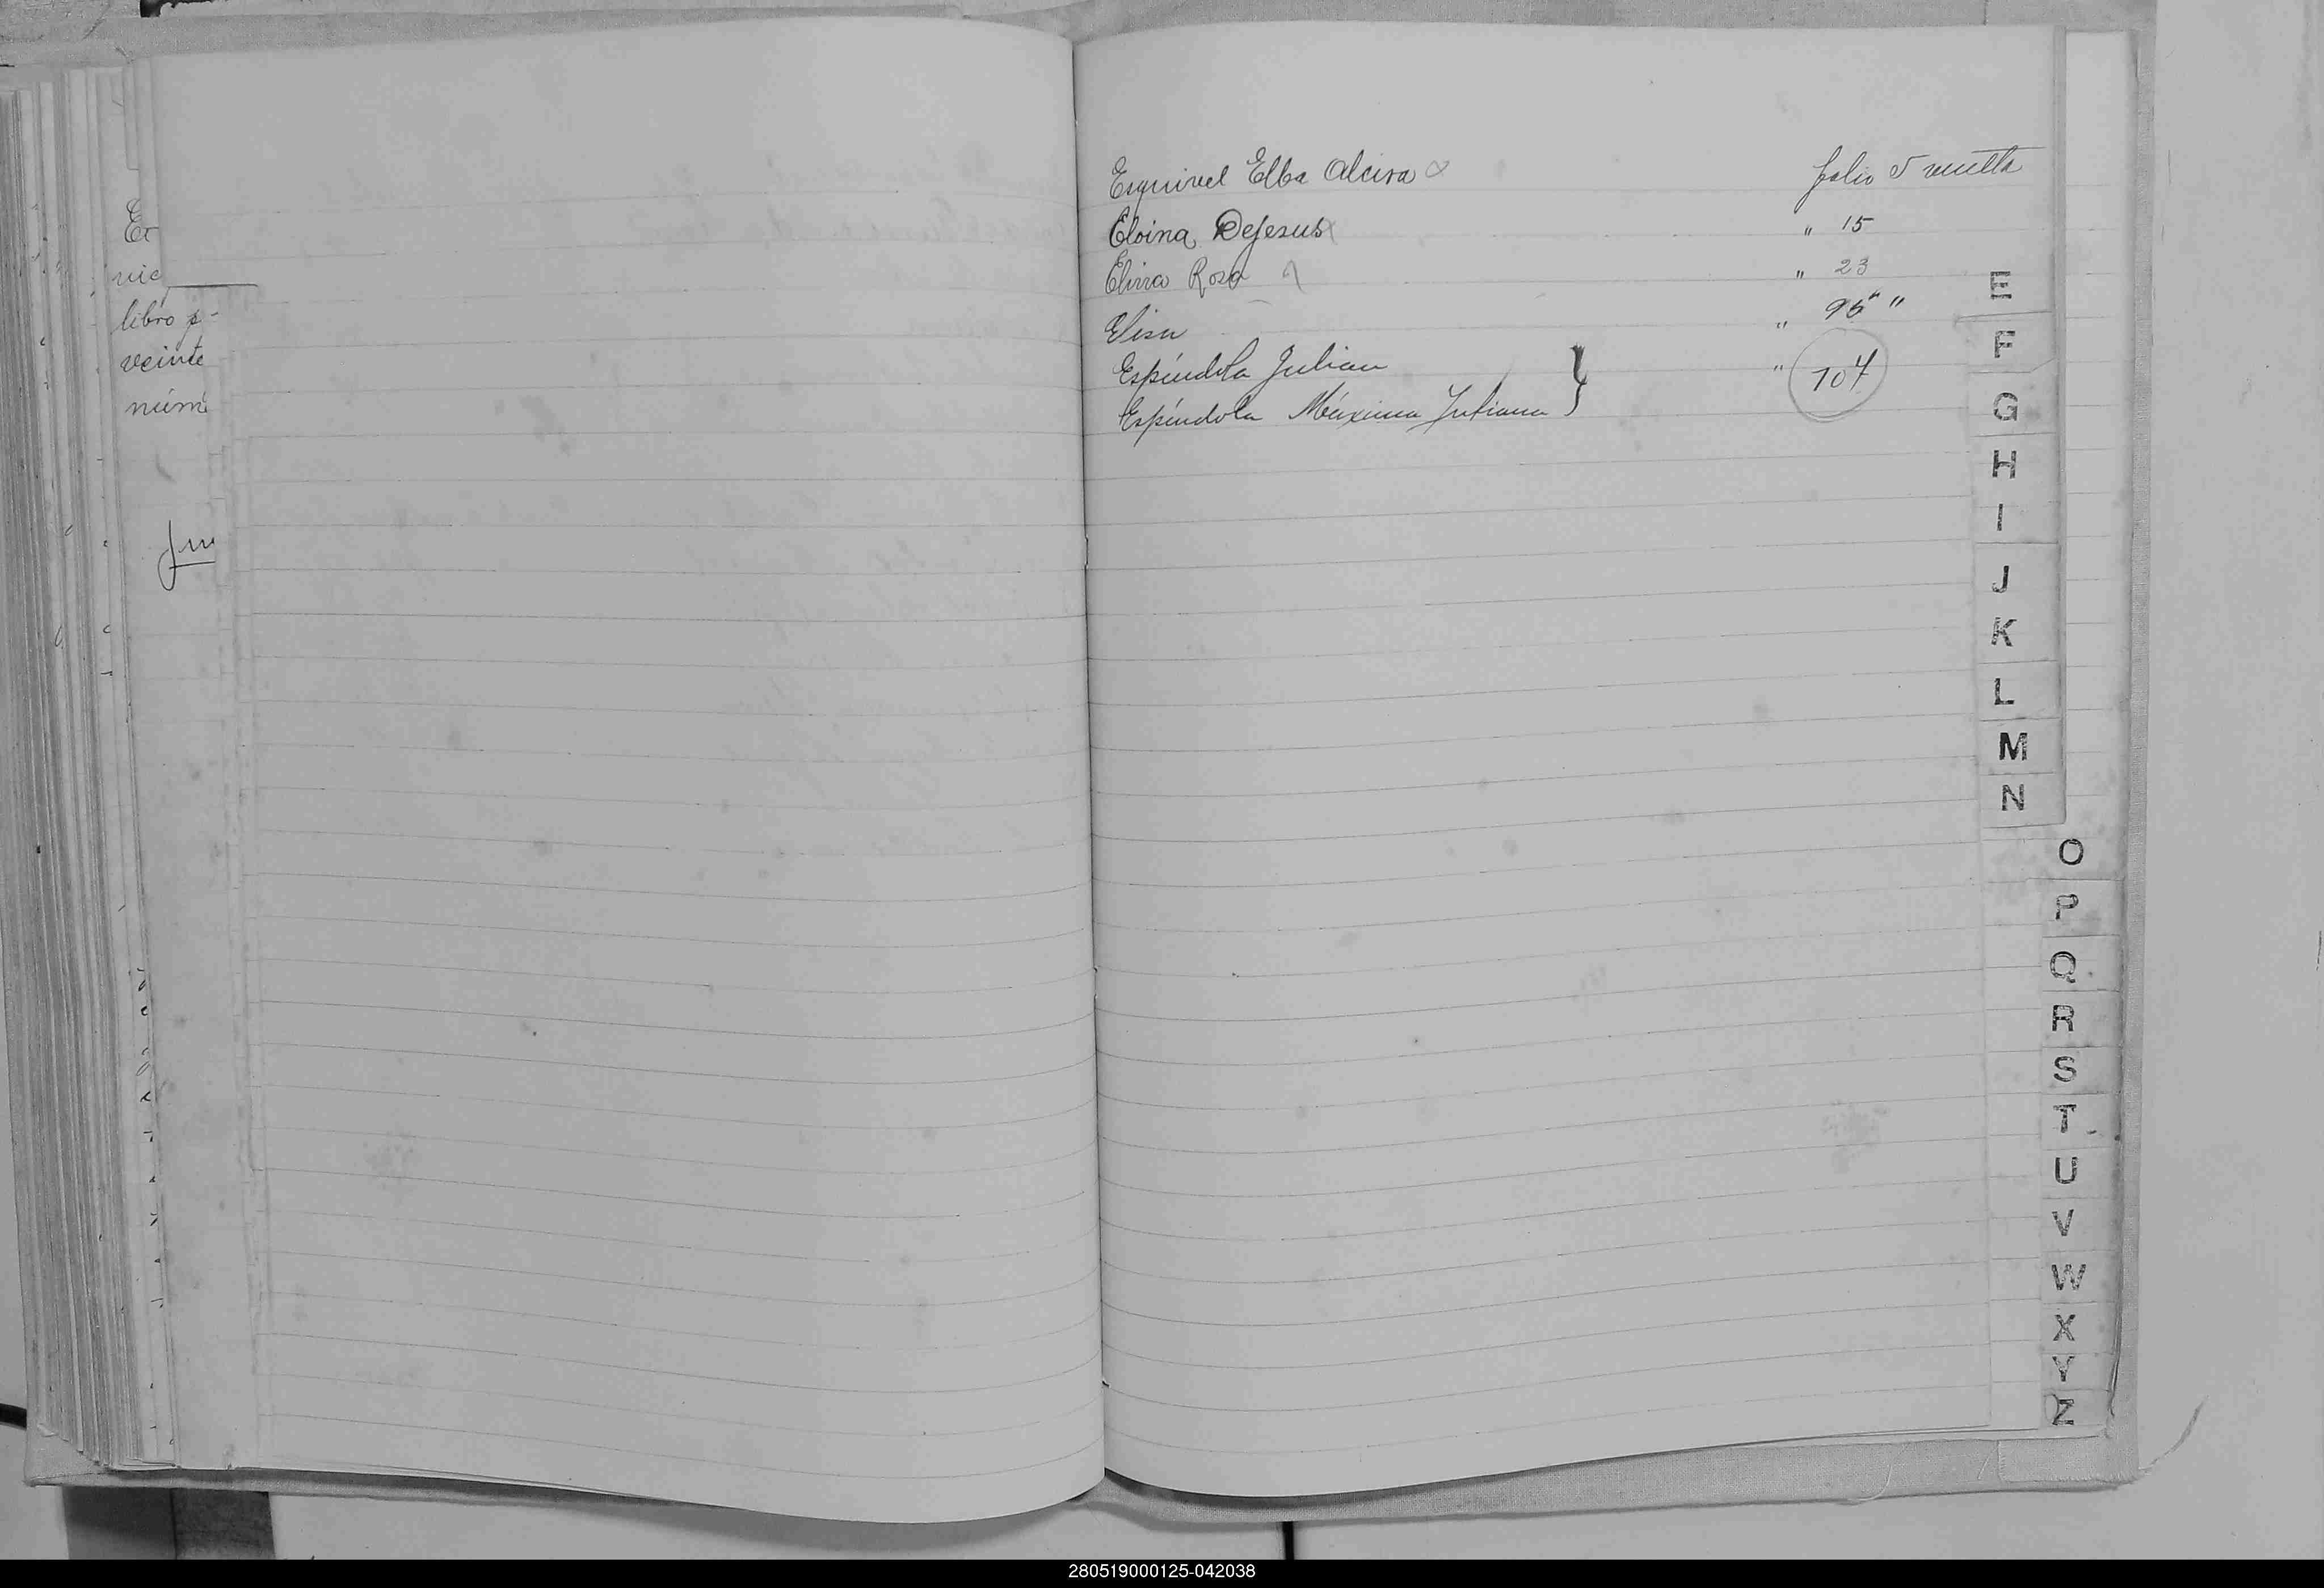 Er
vic
libro p-
veinte
núm
Esquivel Elba Alcira folio 5 vuelta
Eloina Dejesus " 15
Elvira Rosa " 23
Elisa " 95 " "
Espíndola Julian " 104
Espíndola Máxima Juliana
E
F
G
H
I
J
K
L
M
N
O
P
Q
R
S
T
U
V
W
X
Y
Z
280519000125-042038